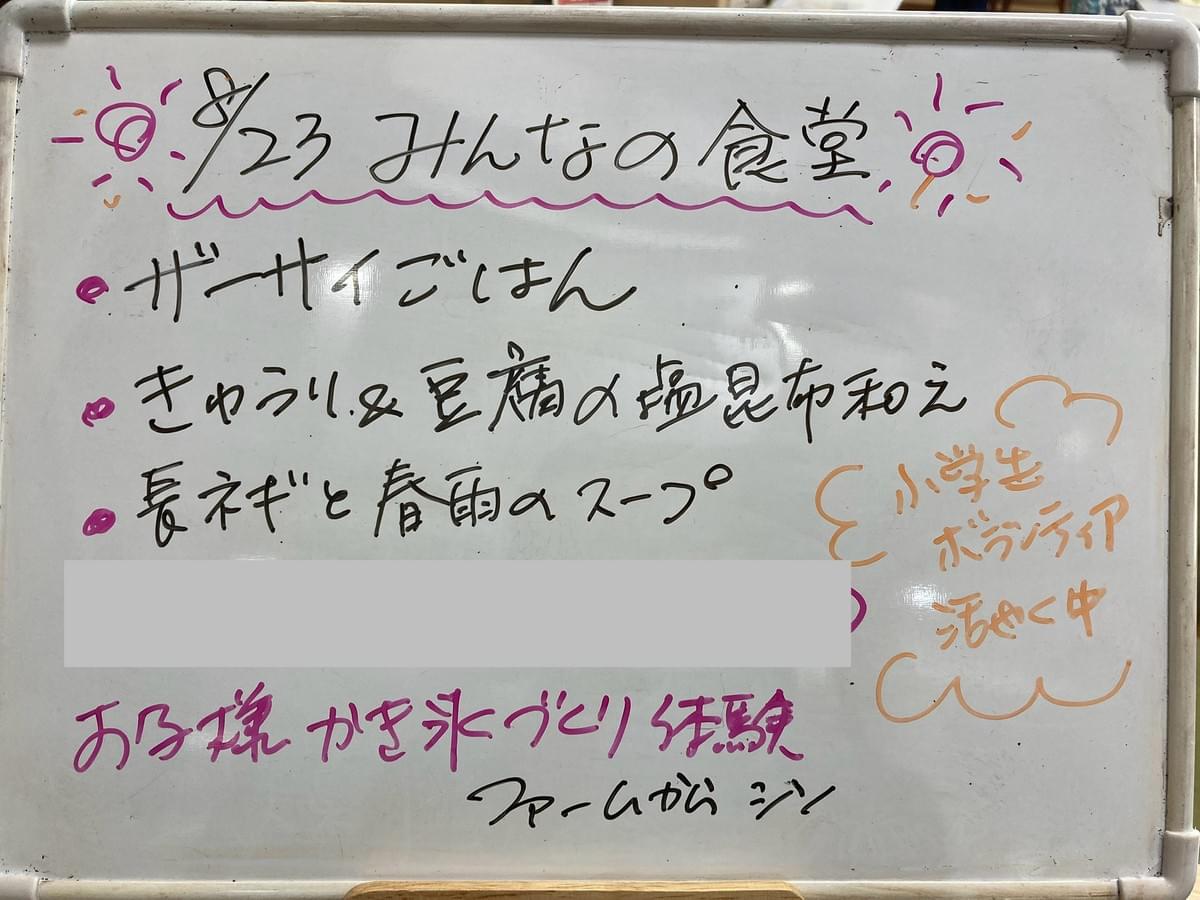 8/23 みんなの食堂
・ザーサイごはん
・きゅうり&豆腐の塩昆布和え
・長ネギと春雨のスープ
小学生
ボランティア
活やく中
お子様 かき氷づくり体験
ファームから ジン